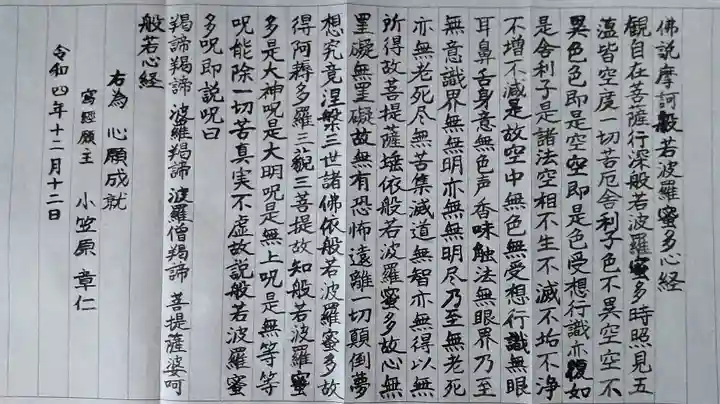 佛説摩訶般若波羅蜜多心経
観自在菩薩行深般若波羅蜜多時照見五
薀皆空度一切苦厄舎利子色不異空空不
異色色即是空空即是色受想行識亦復如
是舎利子是諸法空相不生不滅不垢不浄
不増不減是故空中無色無受想行識無眼
耳鼻舌身意無色声香味触法無眼界乃至
無意識界無無明亦無無明尽乃至無老死
亦無老死尽無苦集滅道無智亦無得以無
所得故菩提薩埵依般若波羅蜜多故心無
罣礙無罣礙故無有恐怖遠離一切顛倒夢
想究竟涅槃三世諸佛依般若波羅蜜多故
得阿耨多羅三藐三菩提故知般若波羅蜜
多是大神呪是大明呪是無上呪是無等等
呪能除一切苦真実不虚故説般若波羅蜜
多呪即説呪曰
羯諦羯諦 波羅羯諦 波羅僧羯諦 菩提薩婆呵
般若心経
右為 心願成就
寫經願主 小笠原 章仁
令和四年十二月十二日